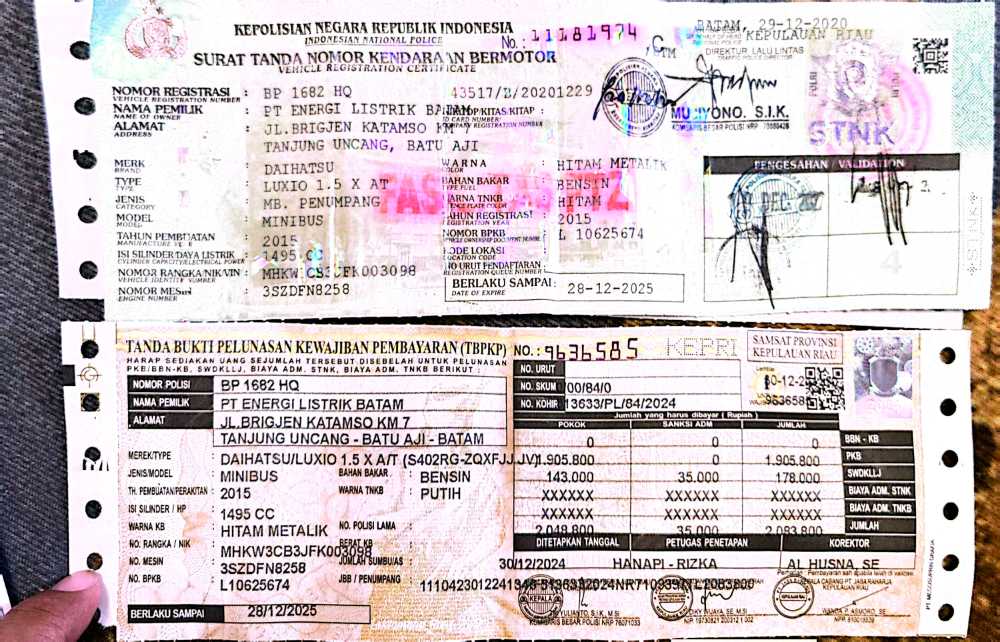 KEPOLISIAN NEGARA REPUBLIK INDONESIA
INDONESIAN NATIONAL POLICE
No. 11181974
SURAT TANDA NOMOR KENDARAAN BERMOTOR
VEHICLE REGISTRATION CERTIFICATE
BATAM, 29-12-2020
KEPULAUAN RIAU
DIREKTUR LALU LINTAS
TRAFFIC POLICE DIRECTOR
S.I.K.
KOMBARIS BESAR POLISI NRP
STNK
NOMOR REGISTRASI : BP 1682 HQ 43517/B/20201229
VEHICLE REGISTRATION NUMBER
NAMA PEMILIK : PT ENERGI LISTRIK BATAM
NAME OF OWNER
ALAMAT : JL.BRIGJEN KATAMSO KM
ADDRESS
TANJUNG UNCANG, BATU AJI
MERK : DAIHATSU
BRAND
TYPE : LUXIO 1.5 X AT
TYPE
JENIS : MB. PENUMPANG
CATEGORY
MODEL : MINIBUS
MODEL
TAHUN PEMBUATAN : 2015
ISI SILINDER/DAYA LISTRIK : 1495 CC
NOMOR RANGKA/NIK/VIN : MHKW CB3JFK003098
NOMOR MESIN : 3SZDFN8258
ENGINE NUMBER
WARNA : HITAM METALIK
COLOR
BAHAN BAKAR : BENSIN
TYPE FUEL
WARNA TNKB : HITAM
TAHUN REGISTRASI : 2015
NOMOR BPKB : L 10625674
KODE LOKASI
LOCATION CODE
NO URUT PENDAFTARAN
REGISTRATION QUEUE NUMBER
BERLAKU SAMPAI : 28-12-2025
DATE OF EXPIRE
PENGESAHAN / VALIDATION
TANDA BUKTI PELUNASAN KEWAJIBAN PEMBAYARAN (TBPKP)
HARAP SEDIAKAN UANG SEJUMLAH TERSEBUT DISEBELAH UNTUK PELUNASAN
PKB/BBN-KB, SWDKLLJ, BIAYA ADM. STNK, BIAYA ADM. TNKB BERIKUT :
NO.: 9636585 KEPRI
SAMSAT PROVINSI
KEPULAUAN RIAU
NO. URUT
NO. SKUM 00/84/0
NO. KOHIR 13633/PL/84/2024
NOMOR POLISI : BP 1682 HQ
NAMA PEMILIK : PT ENERGI LISTRIK BATAM
ALAMAT : JL.BRIGJEN KATAMSO KM 7
TANJUNG UNCANG - BATU AJI - BATAM
MEREK/TYPE : DAIHATSU/LUXIO 1.5 X A/T (S402RG-ZQXFJJ,JV)
JENIS/MODEL : MINIBUS
BAHAN BAKAR : BENSIN
TH. PEMBUATAN/PERAKITAN : 2015
WARNA TNKB : PUTIH
ISI SILINDER / HP : 1495 CC
WARNA KB : HITAM METALIK
NO. POLISI LAMA :
NO. RANGKA / NIK : MHKW3CB3JFK003098
BERAT KB
NO. MESIN : 3SZDFN8258
JUMLAH SUMBU/AS :
NO. BPKB : L10625674
JBB / PENUMPANG :
BERLAKU SAMPAI : 28/12/2025
Jumlah yang harus dibayar ( Rupiah )
POKOK SANKSI ADM JUMLAH
0 0 0 BBN - KB
1.905.800 0 1.905.800 PKB
143.000 35.000 178.000 SWDKLLJ
XXXXXX XXXXX XXXXX BIAYA ADM. STNK
XXXXXX XXXXX XXXXX BIAYA ADM. TNKB
2.048.800 35.000 2.083.800 JUMLAH
DITETAPKAN TANGGAL PETUGAS PENETAPAN KOREKTOR
30/12/2024 HANAPI - RIZKA AL HUSNA, SE
KEPULAUAN RIAU